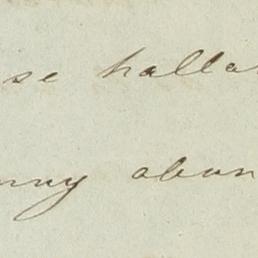 se halla
ny abun